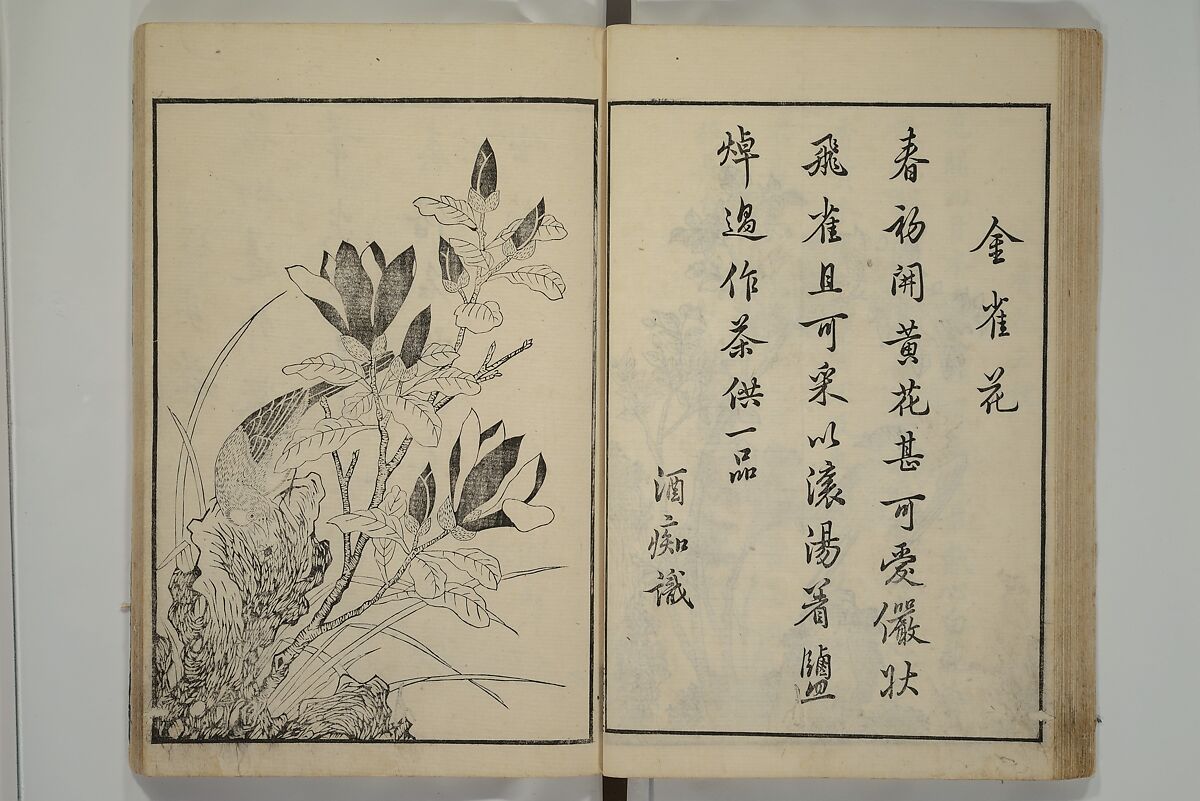 金雀花
春初開黄花甚可愛儼状
飛雀且可采以滚湯著鹽
焯過作茶供一品
酒痴識